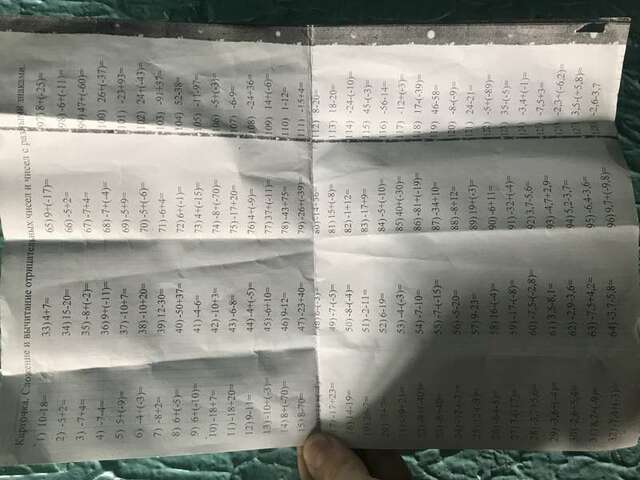 Карточка. Сложение и вычитание отрицательных чисел и чисел с разными знаками.
1) 10-18=
2) -5+2=
3) -7+4=
4) -7-4=
5) 5+(-9)=
6) -4+(-3)=
7) -8+2=
8) 6+(-5)=
9) 6+(-10)=
10) -18+7=
11) -18+20=
12) 9-11=
13) -10+(-3)=
14) 8+(-70)=
15) 8-70=
17) -17+23=
18) 14-19=
28) -5,7+5,6=
29) -3,6+(-4)=
30) -2,6+5,4=
31) 8,7+(-9)=
32) -7,4+(-3)=
33) 4+7=
34) 15-20=
35) -8+(-2)=
36) 9+(-11)=
37) -10+7=
38) -10+20=
39) 12-30=
40) -50+37=
41) -4-6=
42) -10+3=
43) -6-8=
44) -4+(-5)=
45) -6+10=
46) 9-12=
47) -23+40=
49) -7-(-5)=
50) -8-(-4)=
51) -2-11=
52) 6-19=
53) -4-(-3)=
54) -7-10=
55) -7-(-15)=
56) -5-20=
57) 9-23=
58) 16-(-4)=
59) -17-(-8)=
60) -7,5-(-2,8)=
61) 3,5-8,1=
62) -2,9-3,6=
63) -7,5+4,2=
64) -5,7-5,8=
65) 9+(-17)=
66) -5+2=
67) -7+4=
68) -7+(-4)=
69) -5+9=
70) -5+(-6)=
71) -6+4=
72) 6+(-1)=
73) 4+(-15)=
74) -8+(-70)=
75) -17+20=
76) 4+(-9)=
77) 37+(-11)=
78) -43+75=
79) -26+(-39)=
80) -14+36=
81) 15+(-8)=
82) -1+12=
83) -17+9=
84) -5+(-10)=
85) 40+(-30)=
86) -81+(-19)=
87) -34+10=
88) -8+12=
89) 19+(-3)=
90) -6+11=
91) -32+(-4)=
92) 3,7-5,6=
93) -4,7+2,9=
94) 5,2-3,7=
95) -6,4-3,6=
96) 9,7+(-9,8)=
97) 8+(-25)=
98) -6+(-11)=
99) 47+(-60)=
100) 26+(-37)=
101) -23+93=
102) 24+(-43)=
103) -91+37=
104) 52-38=
105) -11-97=
106) -5+(-3)=
107) -6-9=
108) -24+36=
109) 14+(-6)=
110) 1-12=
111) -15+4=
112) 8-20=
113) 18-20=
114) -24-(-10)=
115) 45-(-3)=
116) -56-14=
117) -12+(-3)=
118) 17-(-39)=
119) 46-58=
120) -8-(-9)=
121) 24-21=
122) -5+(-89)=
123) 35-(-5)=
124) -3,4+(-1)=
125) -7,5+3=
126) -2,3+(-6,2)=
127) 3,5-(+5,8)=
128) -2,6-3,7